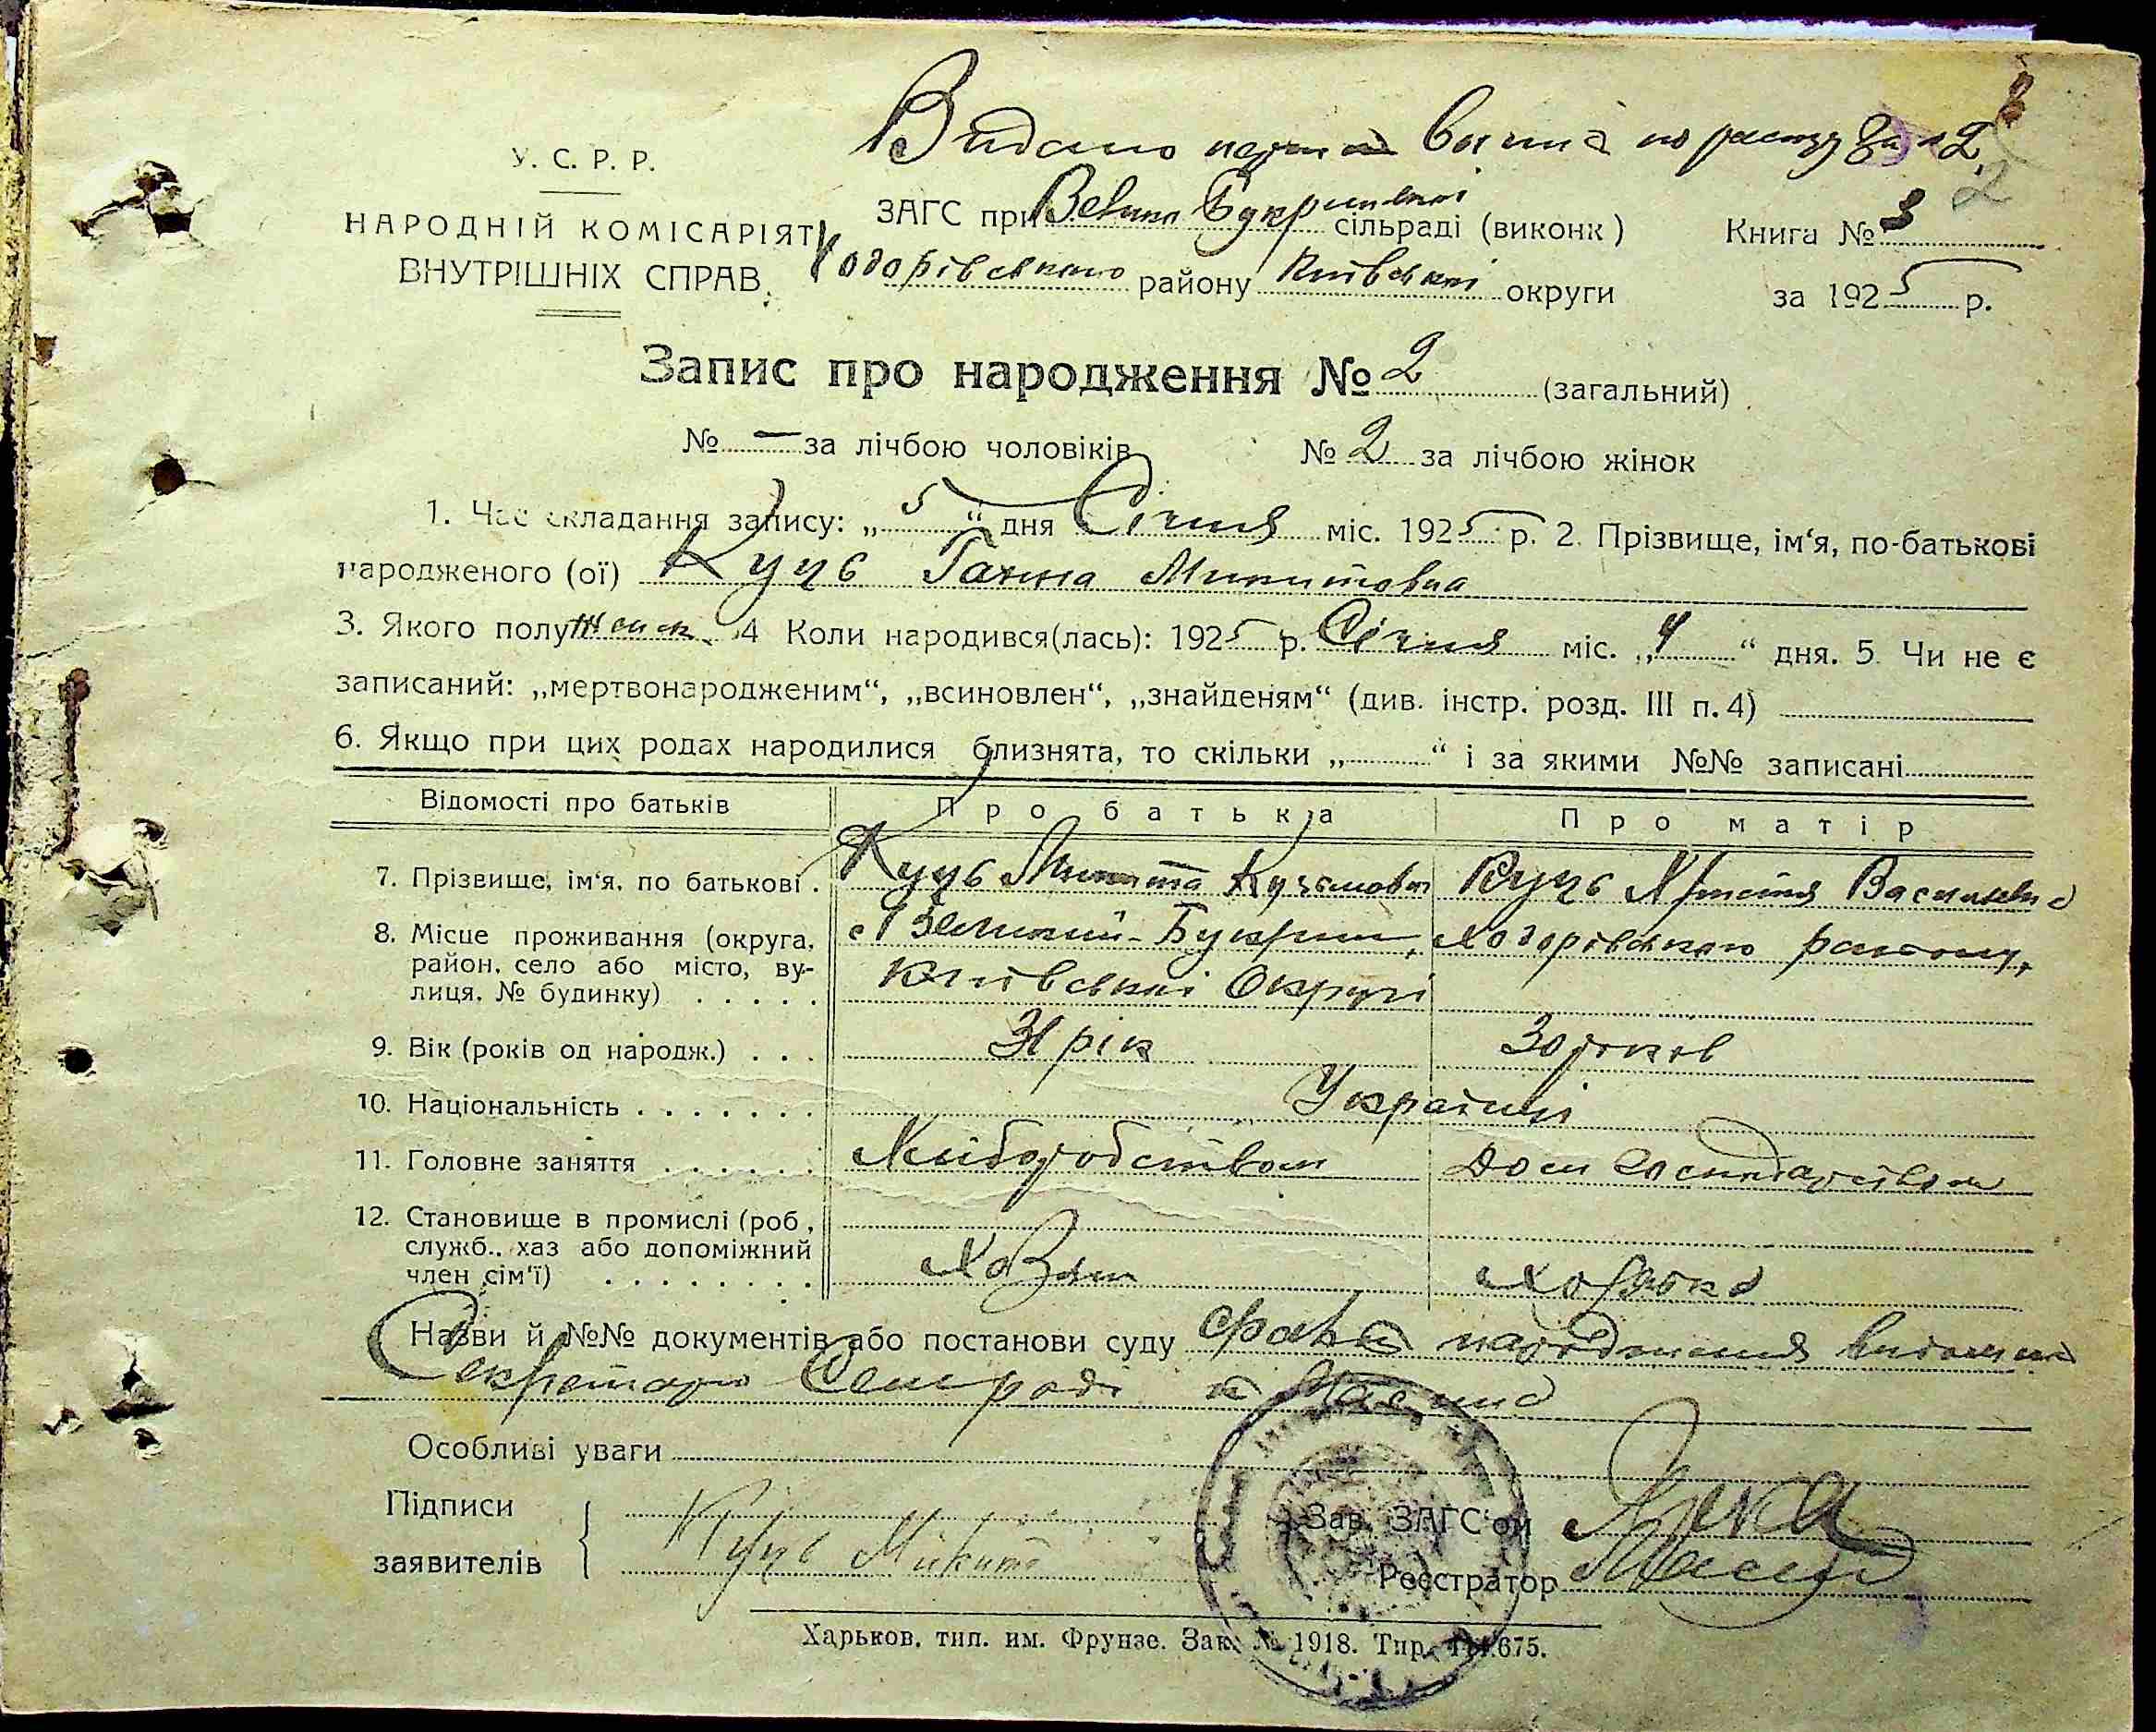 Видано
У. С. Р. Р.
НАРОДНІЙ КОМІСАРІЯТ
ВНУТРІШНІХ СПРАВ.
ЗАГС при Велико Букринській сільраді (виконк)
Ходорівського району Київської округи
Книга № 3
за 1925 р.
2
Запис про народження № 2 (загальний)
№ — за лічбою чоловіків
№ 2 за лічбою жінок
1. Час складання запису: „5“ дня Січня міс. 1925 р. 2. Прізвище, ім‘я, по-батькові
народженого (ої) Куць Ганна Микитовна
3. Якого полу Жіноч. 4 Коли народився(лась): 1925 р. Січня міс. „4“ дня. 5. Чи не є
записаний: „мертвонародженим“, „всиновлен“, „знайденям“ (див. інстр. розд. III п. 4)
6. Якщо при цих родах народилися близнята, то скільки „ “ і за якими №№ записані
Відомості про батьків
Про батька
Про матір
7. Прізвище, ім‘я, по батькові .
Куць Микита Кузьмович
Куць Христя Василівна
8. Місце проживання (округа,
район, село або місто, ву-
лиця, № будинку) . . . . .
с Великий-Букрин, Ходорівського району,
Київської Округи
9. Вік (років од народж.) . . .
31 рік
30 років
10. Національність . . . . . . .
Українці
11. Головне заняття . . . . . .
Хліборобством
Дом Господарством
12. Становище в промислі (роб,
служб., хаз або допоміжний
член сім‘ї) . . . . . . . .
Хозяїн
Хозяйка
Назви й №№ документів або постанови суду народження
Секретарь Сельради
Особливі уваги
Підписи
заявителів
Куць Микита
Зав. ЗАГС‘ом
Реєстратор
Харьков, тип. им. Фрунзе. Зак. № 1918. Тир.